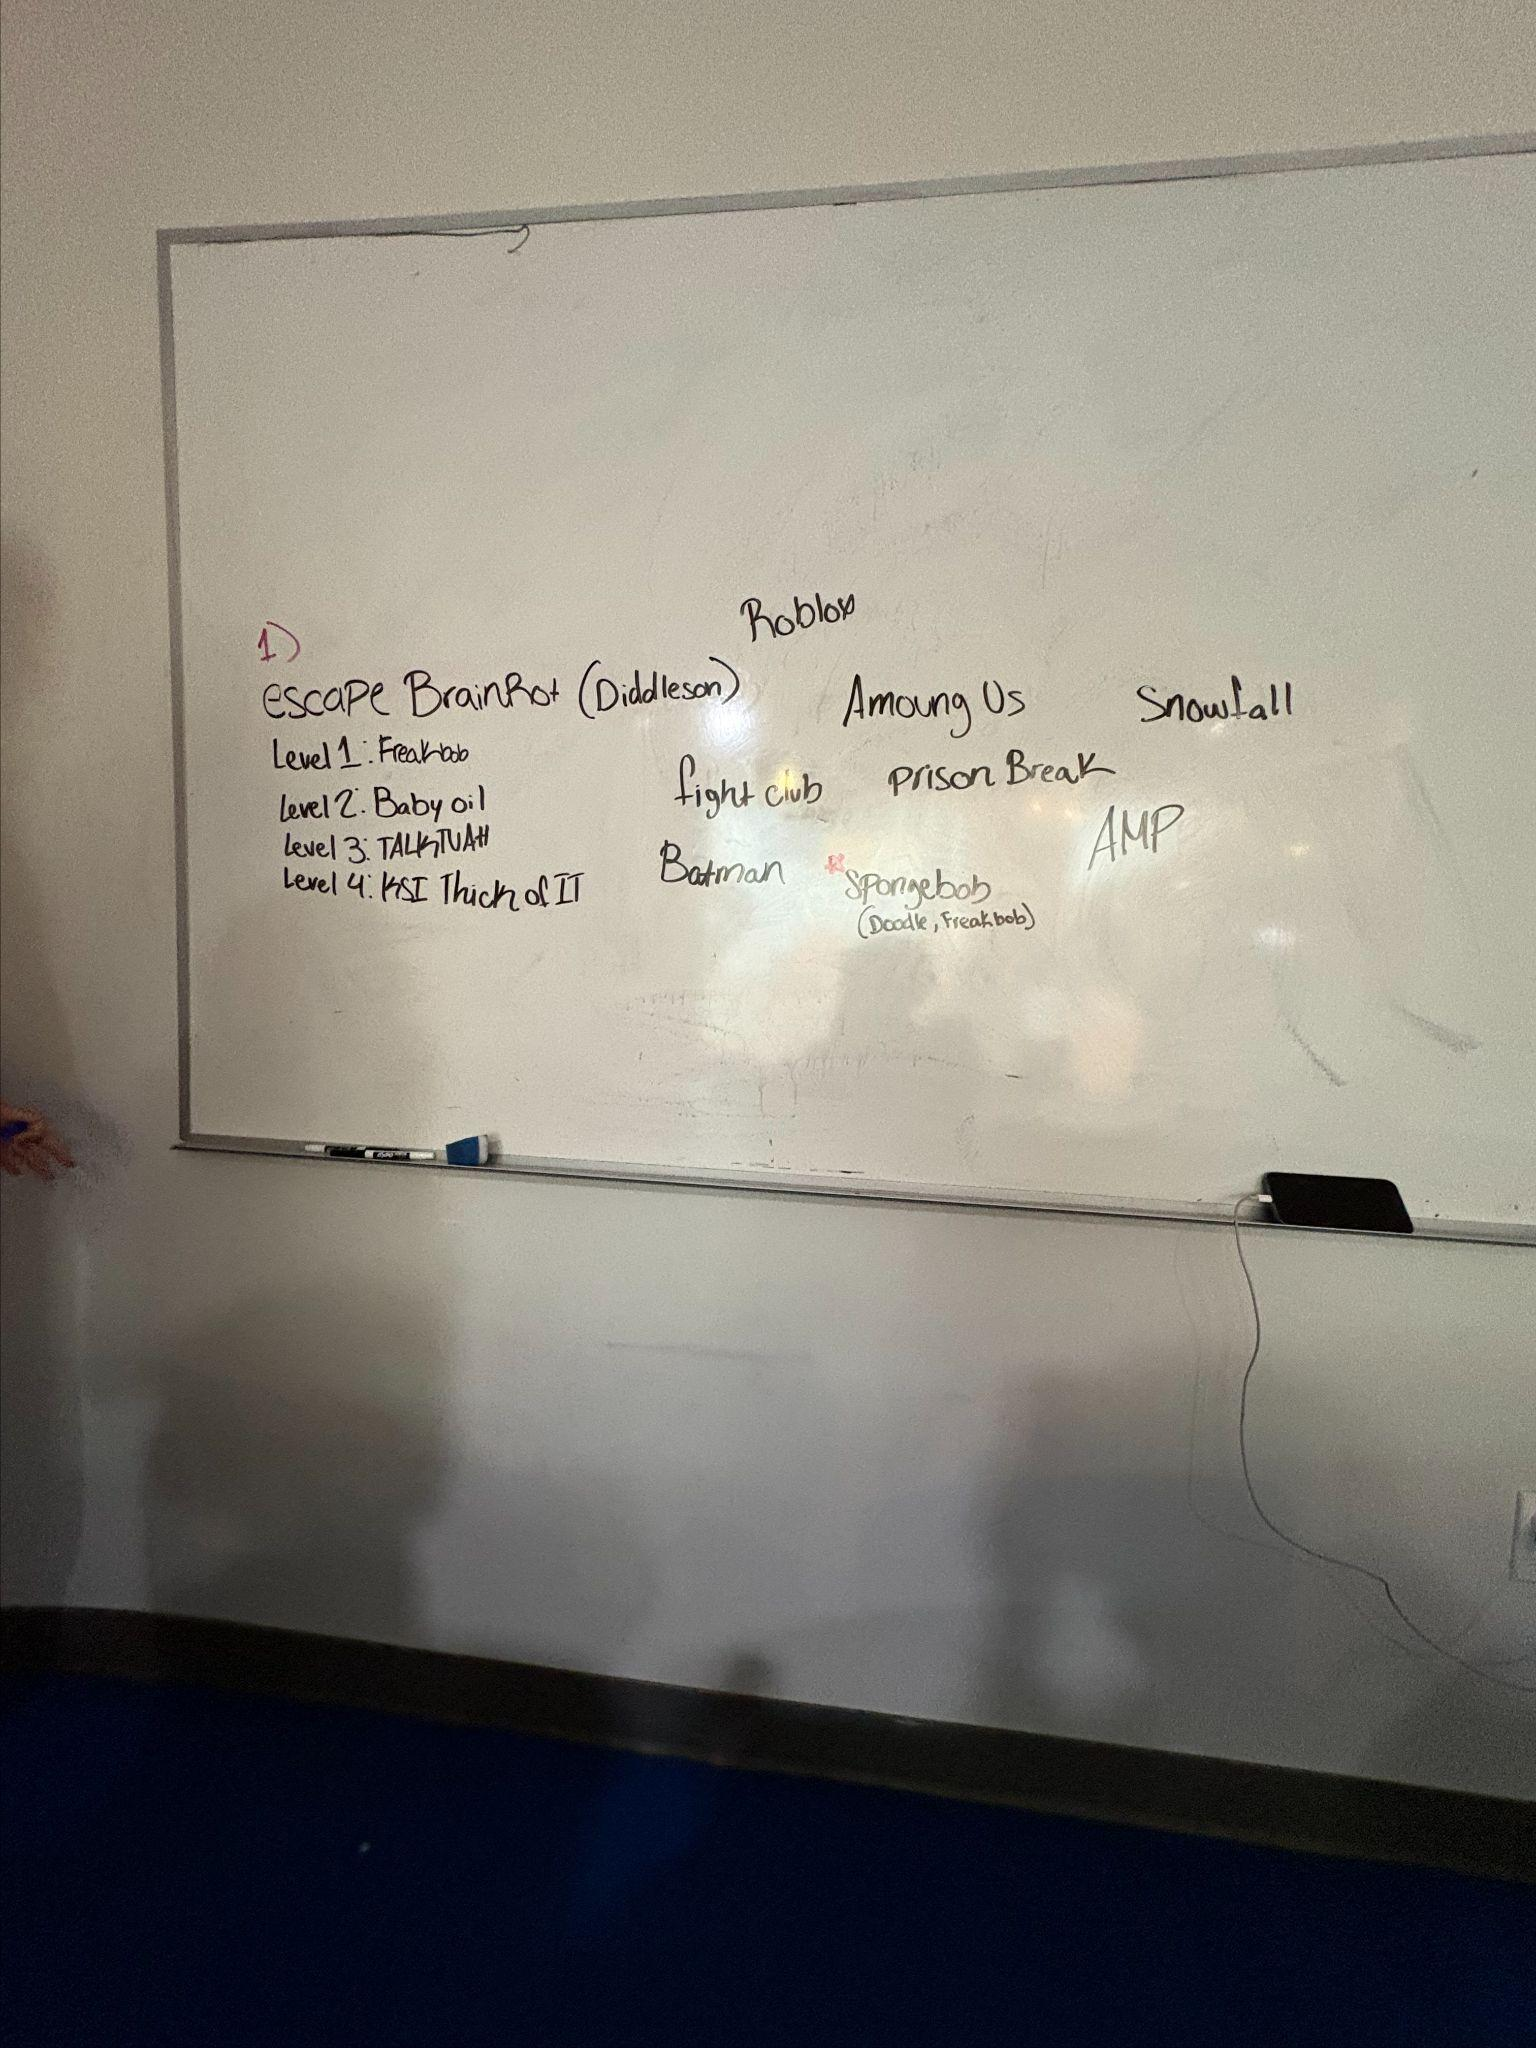 Roblox
1)
escape BrainRot (Diddleson)
Level 1: Freakbob
Level 2: Baby oil
Level 3: TALKTUAH
Level 4: KSI Thick of IT
Amoung Us
Snowfall
fight club
prison Break
AMP
Batman
Spongebob
(Doodle, Freakbob)